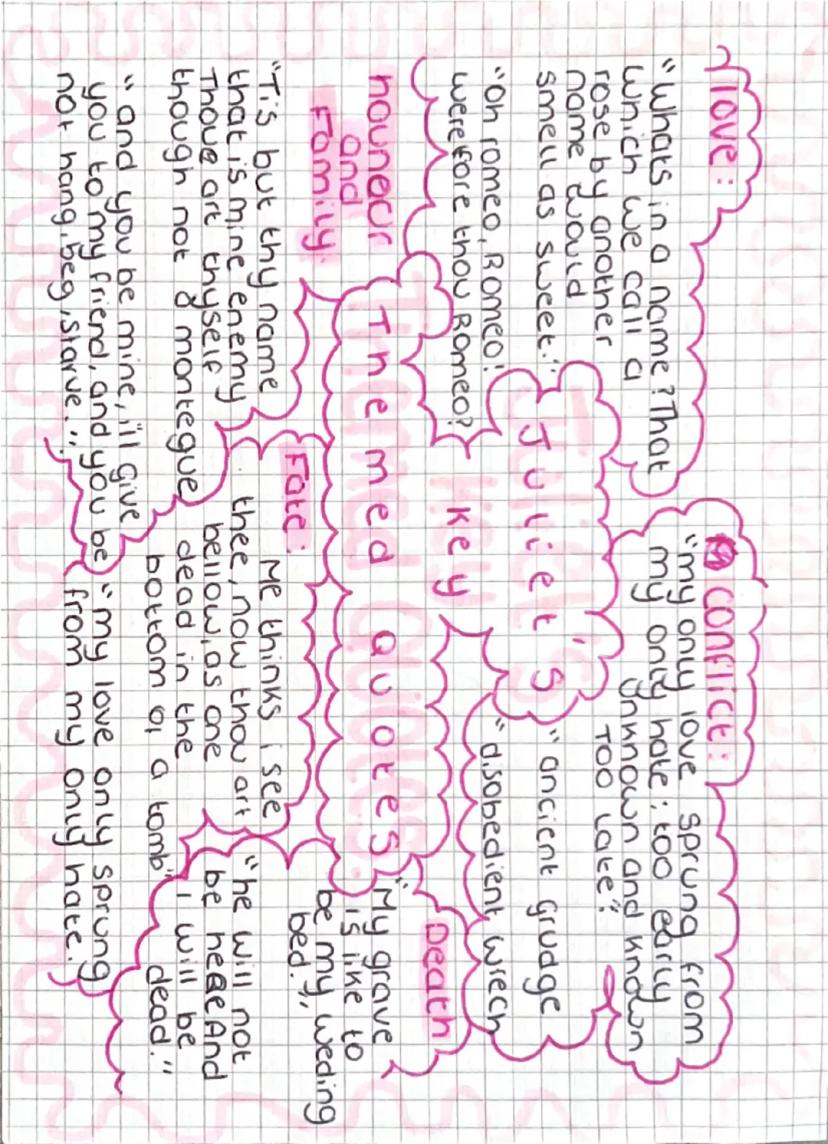 love:
"Whats in a name? That
which we call a
rose by another
name would
smell as sweet."
"Oh romeo, Romeo!
werefore thou Romeo?
conflict:
"my only love sprung from
my only hate; too early
unknown and known
TOO Late"
"ancient grudge
"disobedient wrech
Juliet's
key
Themed Quotes
houneor
and
Family:
"Tis but thy name
that is mine enemy
Thoue art thyself
though not a montegue
"and you be mine, i'll give
you to my friend, and you be
not hang, beg, starve."
Fate:
Me thinks i see
thee, now thou art
bellow, as one
dead in the
bottom of a tomb"
"my love only sprung
from my only hate."
Death
"My grave
is like to
be my weding
bed."
"he will not
be here And
i will be
dead."